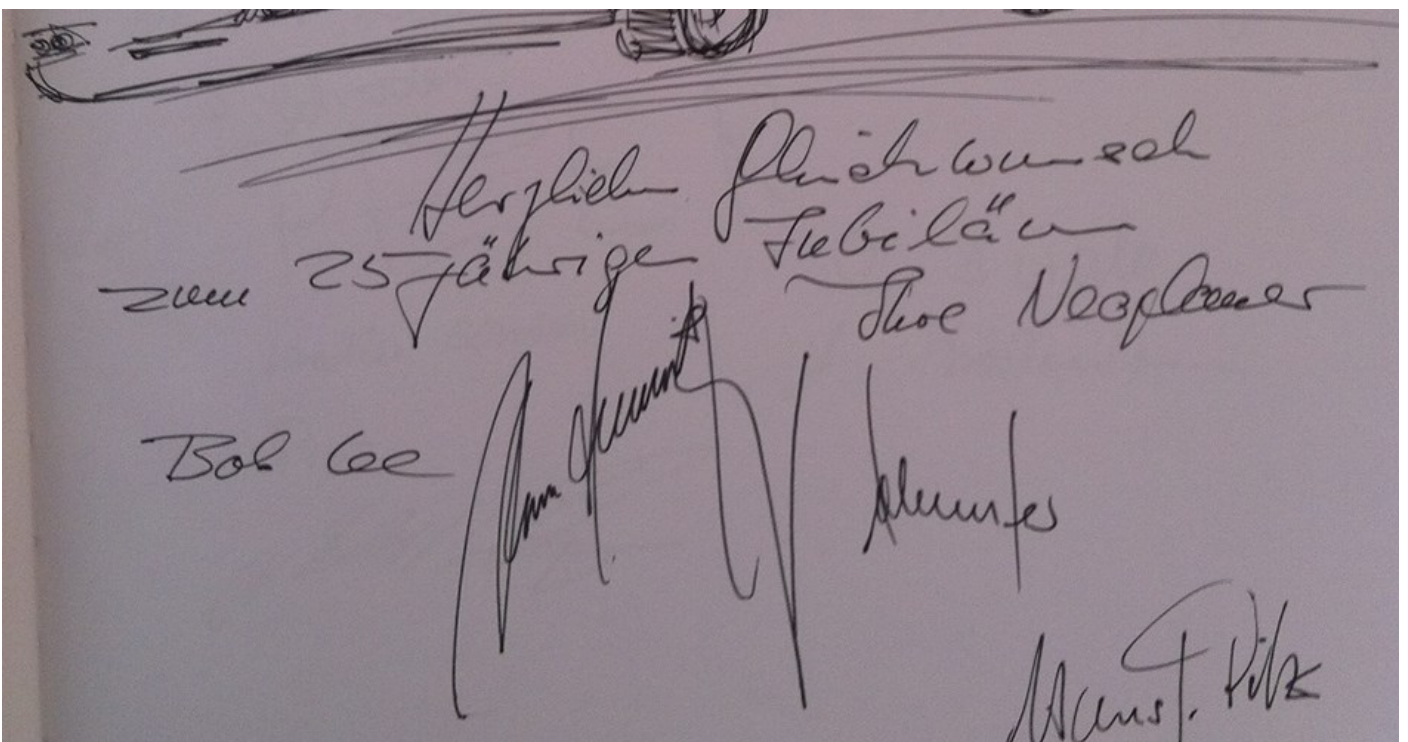 Herzlichen Glückwunsch
zum 25jährigen Jubiläum
Ihre Neoplaner
Bob Lee
Hans J. Pilz